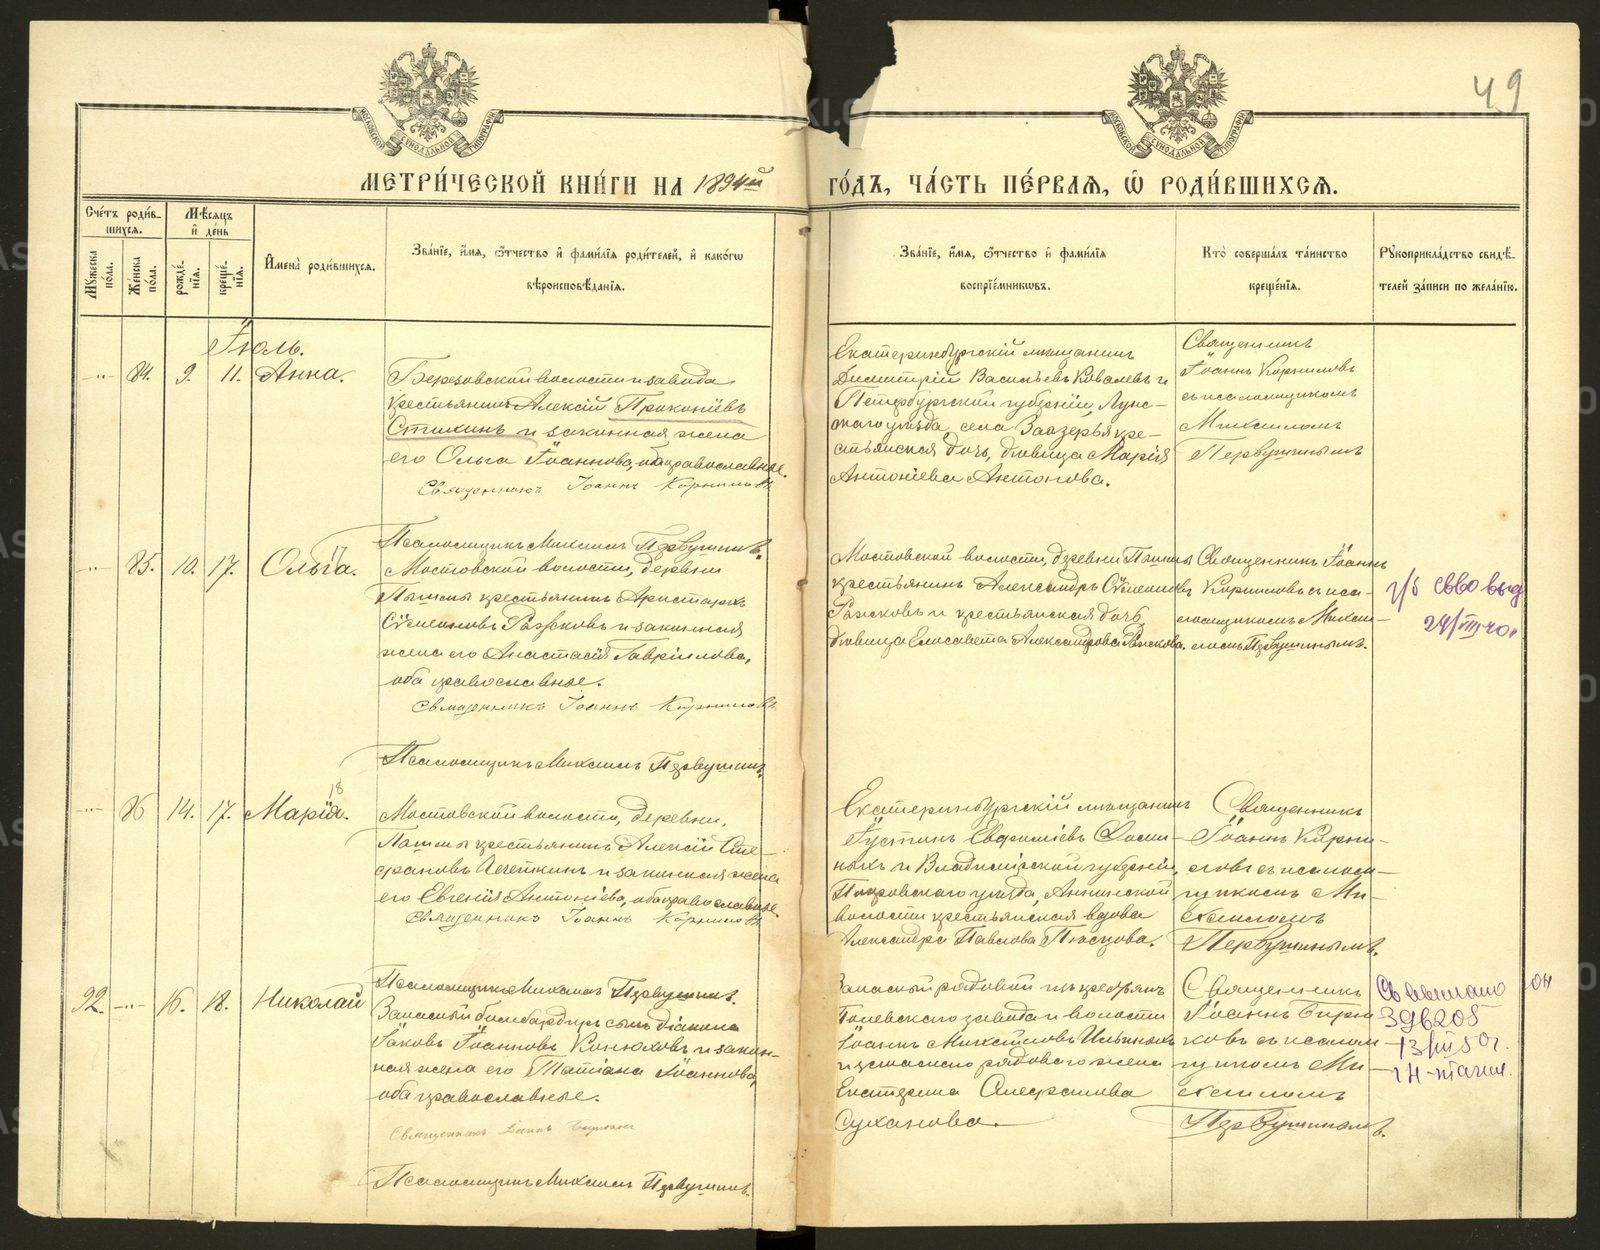 49
МЕТРИ́ЧЕСКОЙ КНИ́ГИ НА 1894й
ГО́ДЪ, ЧА́СТЬ ПЕ́РВАЯ, Ѡ РОДИ́ВШИХСЯ.
Сче́тъ роди́в-
шихся.
Му́жеска по́ла.
Же́нска по́ла.
Мѣсяцъ
и де́нь
рожде́-
нія.
креще́-
нія.
Имена̀ роди́вшихся.
Зва́ніе, и́мя, ѻ́тчество и фами́лія роди́телей, и како́гѡ
вѣроисповѣ́данія.
Зва́ніе, и́мя, ѻ́тчество и фами́лія
воспріе́мниковъ.
Кто̀ соверша́лъ та́инство
креще́нія.
Рукоприкла́дство свидѣ́-
телей за́писи по жела́нію.
Іюль.
84. 9. 11. Анна.
Березовской волости и завода
крестьянинъ Алексій Прокопіевъ
и законная жена
его Ольга Іоаннова, оба православные.
Священникъ Іоаннъ Корниловъ
Псаломщикъ Михаилъ Первушинъ.
Екатеринбургскій мѣщанинъ
Димитрій Васильевъ Ковалевъ и
Петербургской губерніи, Луж-
скаго уѣзда, села Заозерья кре-
стьянская дочь, дѣвица Марія
Антоніева Антонова.
Священникъ
Іоаннъ Корниловъ
съ псаломщикомъ
Михаиломъ
Первушинымъ
85. 10. 17. Ольга.
Мостовской волости, деревни
Пышмы крестьянинъ Аристархъ
Сѵмеоновъ Рожковъ и законная
жена его Анастасія Гавріилова,
оба православные.
Священникъ Іоаннъ Корниловъ
Псаломщикъ Михаилъ Первушинъ.
Мостовской волости, деревни Пышмы
крестьянинъ Александръ Сѵмеоновъ
Рожковъ и крестьянская дочь
дѣвица Елисавета Александрова Рожкова.
Священникъ Іоаннъ
Корниловъ съ пса-
ломщикомъ Михаи-
ломъ Первушинымъ.
св-во выд
24/VIII 40
86 14. 17. Марія.
18
Мостовской волости, деревни
Пышмы крестьянинъ Алексій Сте-
фановъ и законная жена
его Евгенія Антоніева, оба православные.
Священникъ Іоаннъ Корниловъ
Псаломщикъ Михаилъ Первушинъ.
Екатеринбургскій мѣщанинъ
Іустинъ Евфиміевъ
и Владимірской губерніи,
Покровскаго уѣзда, Аннинской
волости крестьянская вдова
Александра Павлова
Священникъ
Іоаннъ Корни-
ловъ съ псалом-
щикомъ Ми-
хаиломъ
Первушинымъ.
92. 16. 18. Николай
Запасный бомбардиръ сынъ діакона
Іаковъ Іоанновъ Конюховъ и закон-
ная жена его Татіана Іоаннова,
оба православные.
Священникъ Іоаннъ
Псаломщикъ Михаилъ Первушинъ.
Запасный рядовой изъ крестьянъ
Полевскаго завода и волости
Іоаннъ Михаиловъ Ильиныхъ
и запаснаго рядоваго жена
Екатерина Стефанова
Суханова.
Священникъ
Іоаннъ Бирю-
ковъ съ псалом-
щикомъ Ми-
хаиломъ
Первушинымъ.